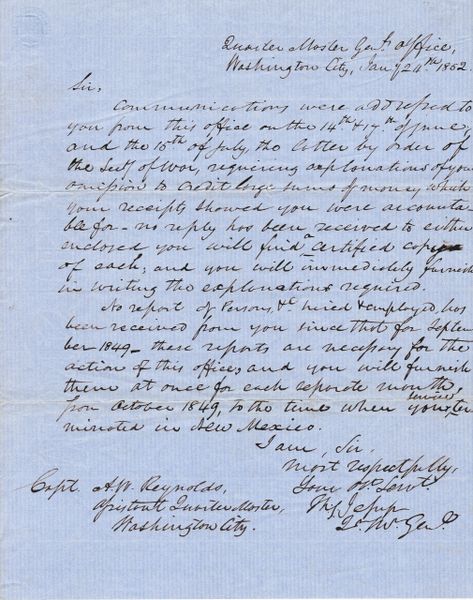 Quarter Master Genl's Office,
Washington City, Jany 24th 1852
Sir,
Communications were addressed to
you from this office on the 14th & 17th of June,
and the 15th of July, the latter by order of
the Secy of War, requiring explanations of your
omission to credit large sums of money which
your receipts showed you were accounta-
ble for - no reply has been received to either
enclosed you will find a certified copy
of each; and you will immediately furnish
in writing the explanations required.
No report of Persons, &c hired & employed, has
been received from you since that for Septem-
ber 1849 - these reports are necessary for the
action of this office, and you will furnish
them at once for each separate month,
from October 1849, to the time when your service ter-
minated in New Mexico.
I am, Sir,
most respectfully,
Your Obt. Servt.
Th. S. Jesup
Qr. Mr. Genl.
Capt. A.W. Reynolds,
Assistant Quarter Master,
Washington City.